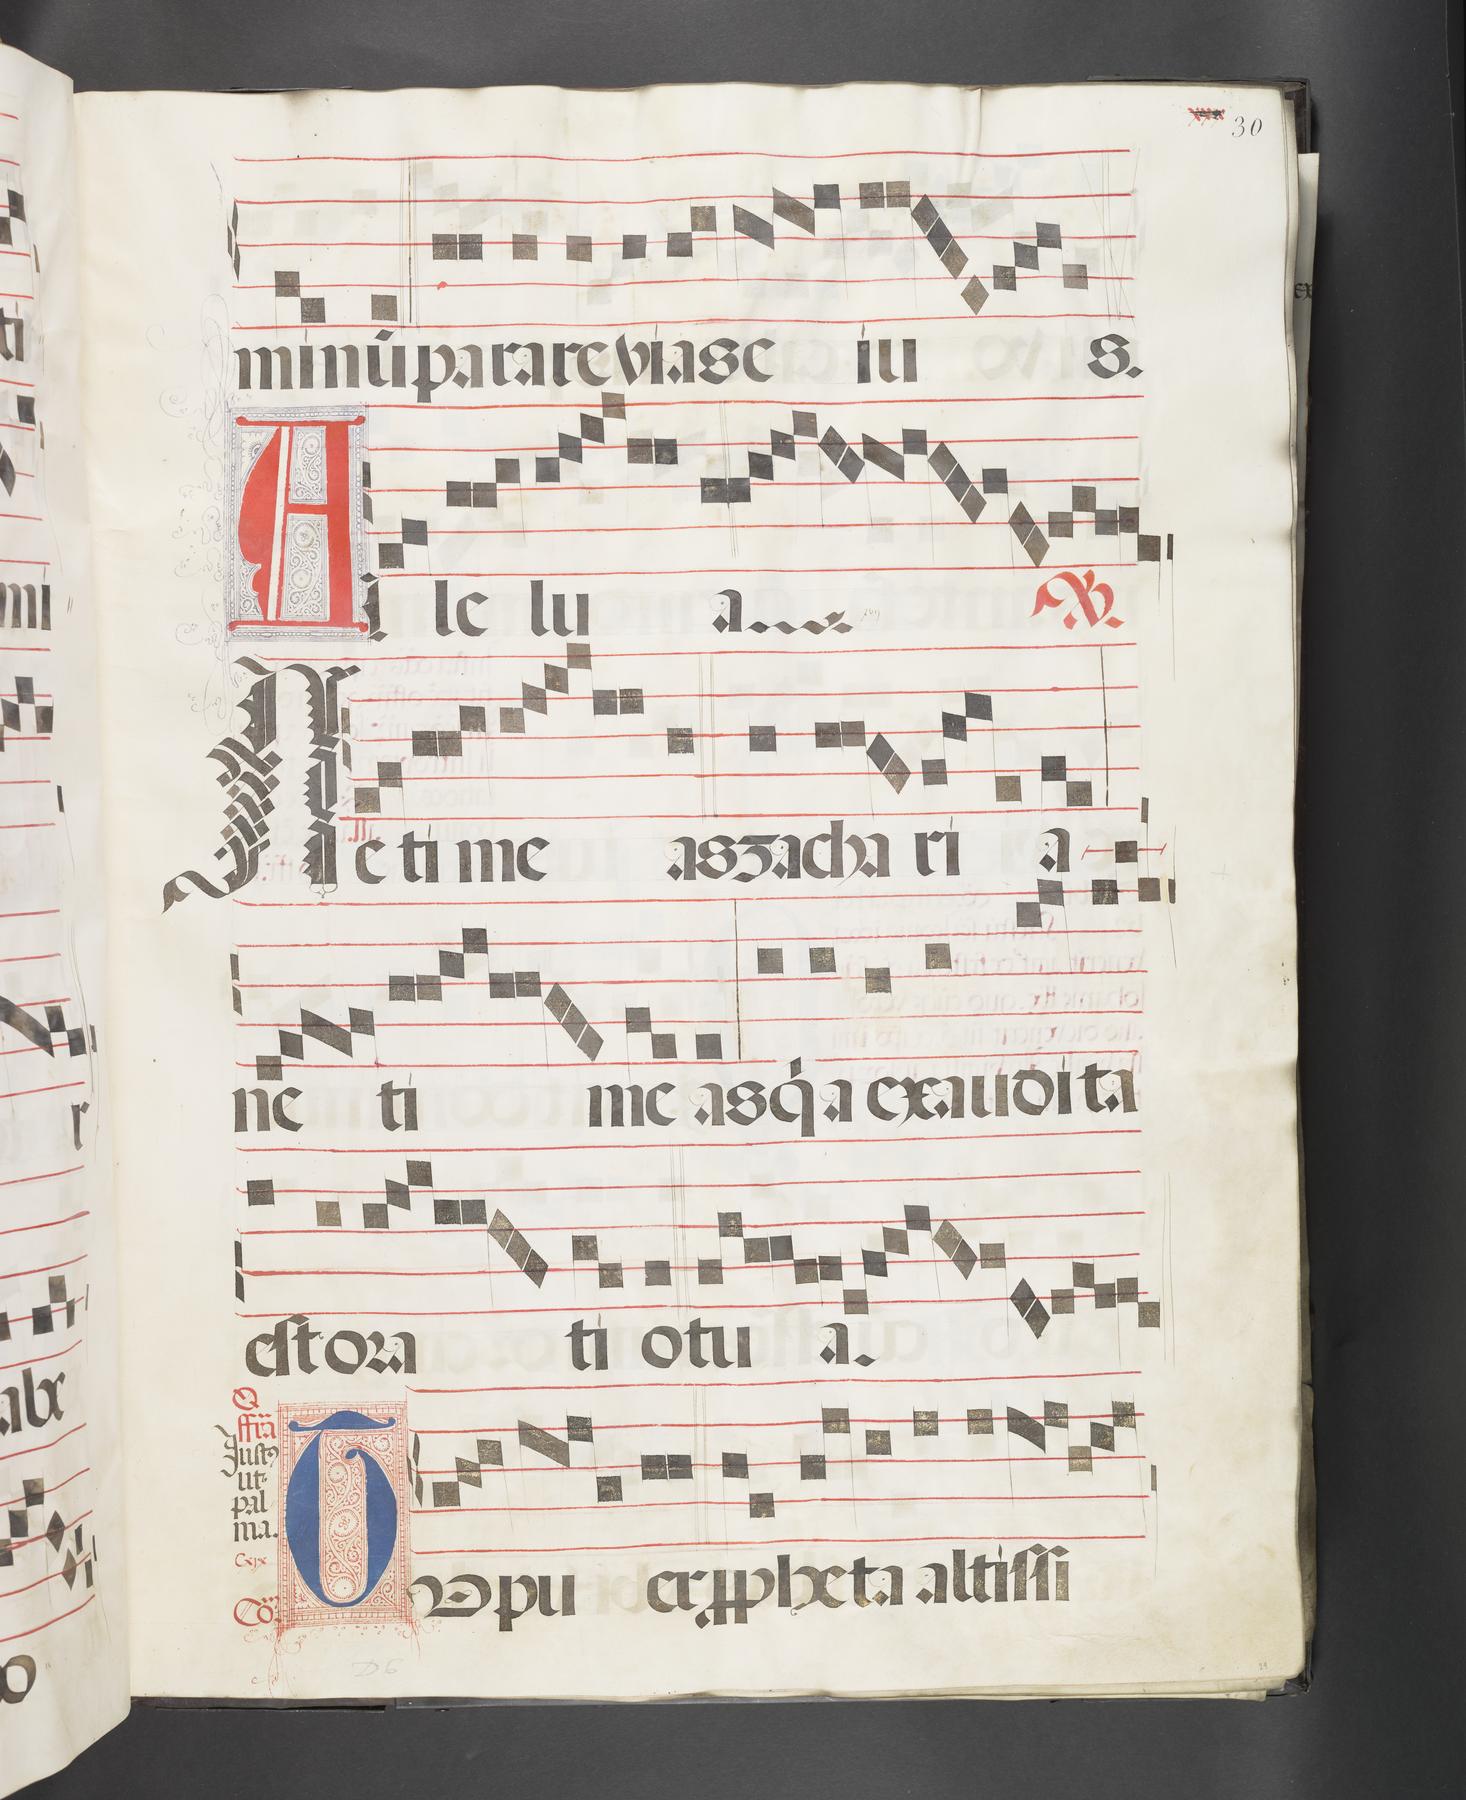 30
minū parare vias e iu s.
Al le lu a. ℣.
Ne time as zacha ri a
ne ti me as q̇a exaudita
est ora ti o tu a.
Offr̄a
Justꝰ
ut
pal
ma.
Cxix
Cō.
Tu pu er ꝓpheta altissi
D6